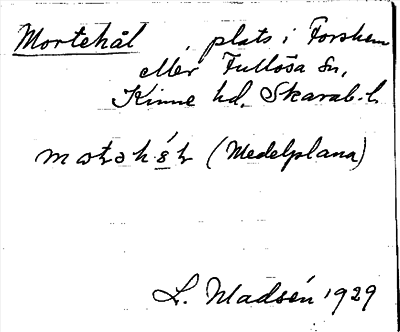 Mortehål, plats i Forshem
eller Fullösa sn,
Kinne hd, Skarab. l.
(Medelplana)
L. Madsén 1929